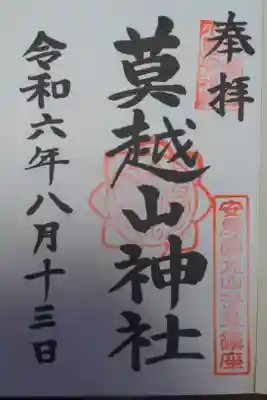 奉拝
莫越山神社
令和六年八月十三日